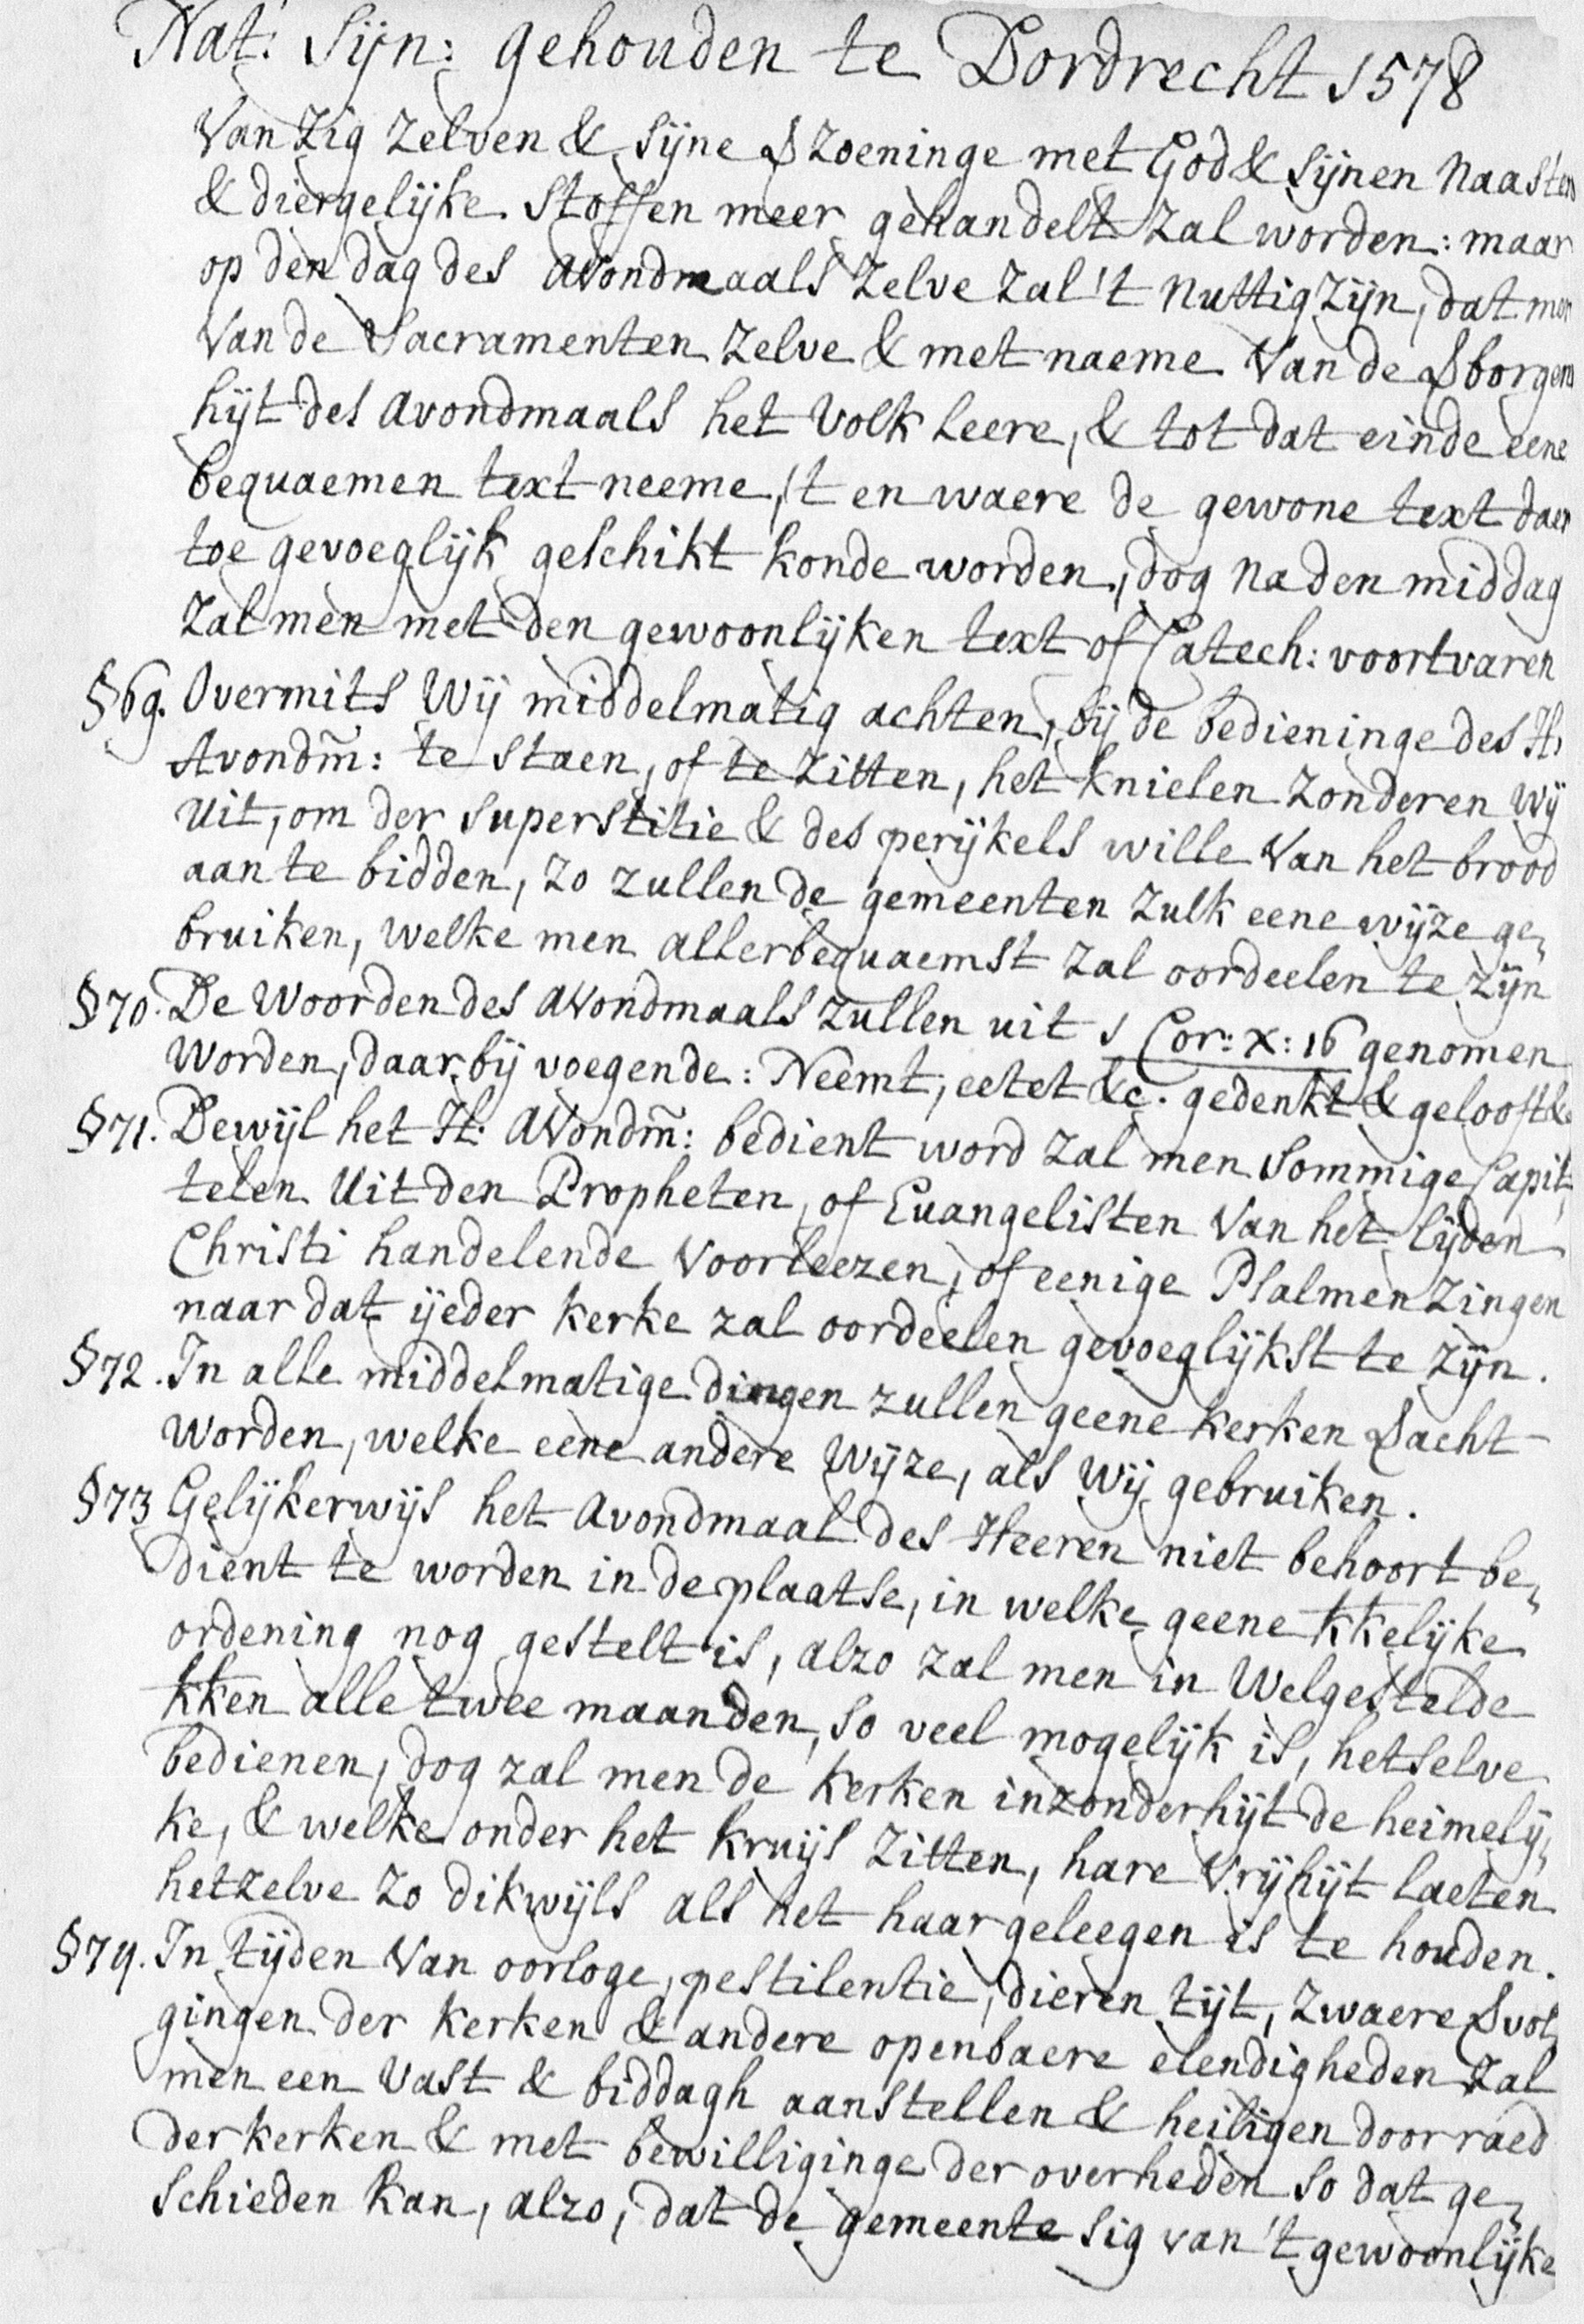 Nat: Sijn: gehouden te Dordrecht 1578
Van zig zelven & sijne Vzoeninge met God & sijnen Naasten
& diergelijke stoffen meer gehandelt zal worden: maar
op den dag des Avondmaals zelve zal 't nuttig zijn, dat men
Van de Sacramenten zelve & met naeme Van de Vborgen
hijt des Avondmaals het Volk leere, & tot dat einde eene
bequaemen text neeme, 't en waere de gewone text daer
toe gevoeglijk geschikt konde worden, dog na den middag
Zal men met den gewoonlijken text of Catech: voortvaren
§69. Overmits Wij middelmatig achten, bij de bedieninge des H.
Avondm̃: te staen, of te zitten, het knielen zonderen wij
Uit, om der superstitie & des perijkels wille Van het brood
aan te bidden, zo zullen de gemeenten zulk eene wijze ge„
bruiken, welke men allerbequaemst zal oordeelen te zijn
§70. De Woorden des Avondmaals zullen uit 1 Cor: X: 16 genomen
Worden, daar bij voegende: Neemt, eetet &c. gedenkt & gelooft &c
§71. Dewijl het H. Avondm̃: bedient word zal men sommige Capit„
telen Uit den Propheten, of Euangelisten Van het lijden
Christi handelende Voorleezen, of eenige Psalmen zingen
naar dat ijeder kerke zal oordeelen gevoeglijkst te zijn.
§72. In alle middelmatige dingen zullen geene kerken Vacht
Worden, welke eene andere Wijze, als Wij gebruiken.
§73 Gelijkerwijs het Avondmaal des Heeren niet behoort be„
dient te worden in de plaatse, in welke geene kkelijke
ordening nog gestelt is, alzo zal men in Welgestelde
kken alle twee maanden, so veel mogelijk is, hetselve
bedienen, dog zal men de kerken inzonderhijt de heimelij„
ke, & welke onder het kruijs zitten, hare Vrijhijt laeten
hetzelve zo dikwijls als het haar geleegen is te houden.
§74. In tijden Van oorloge, pestilentie, dieren tijt, zwaere Vvol„
gingen der kerken & andere openbaere elendigheden zal
men een Vast & biddagh aanstellen & heiligen door raed
der kerken & met bewilliginge der overheden so dat ge„
schieden kan, alzo, dat de gemeente sig van 't gewoonlijke